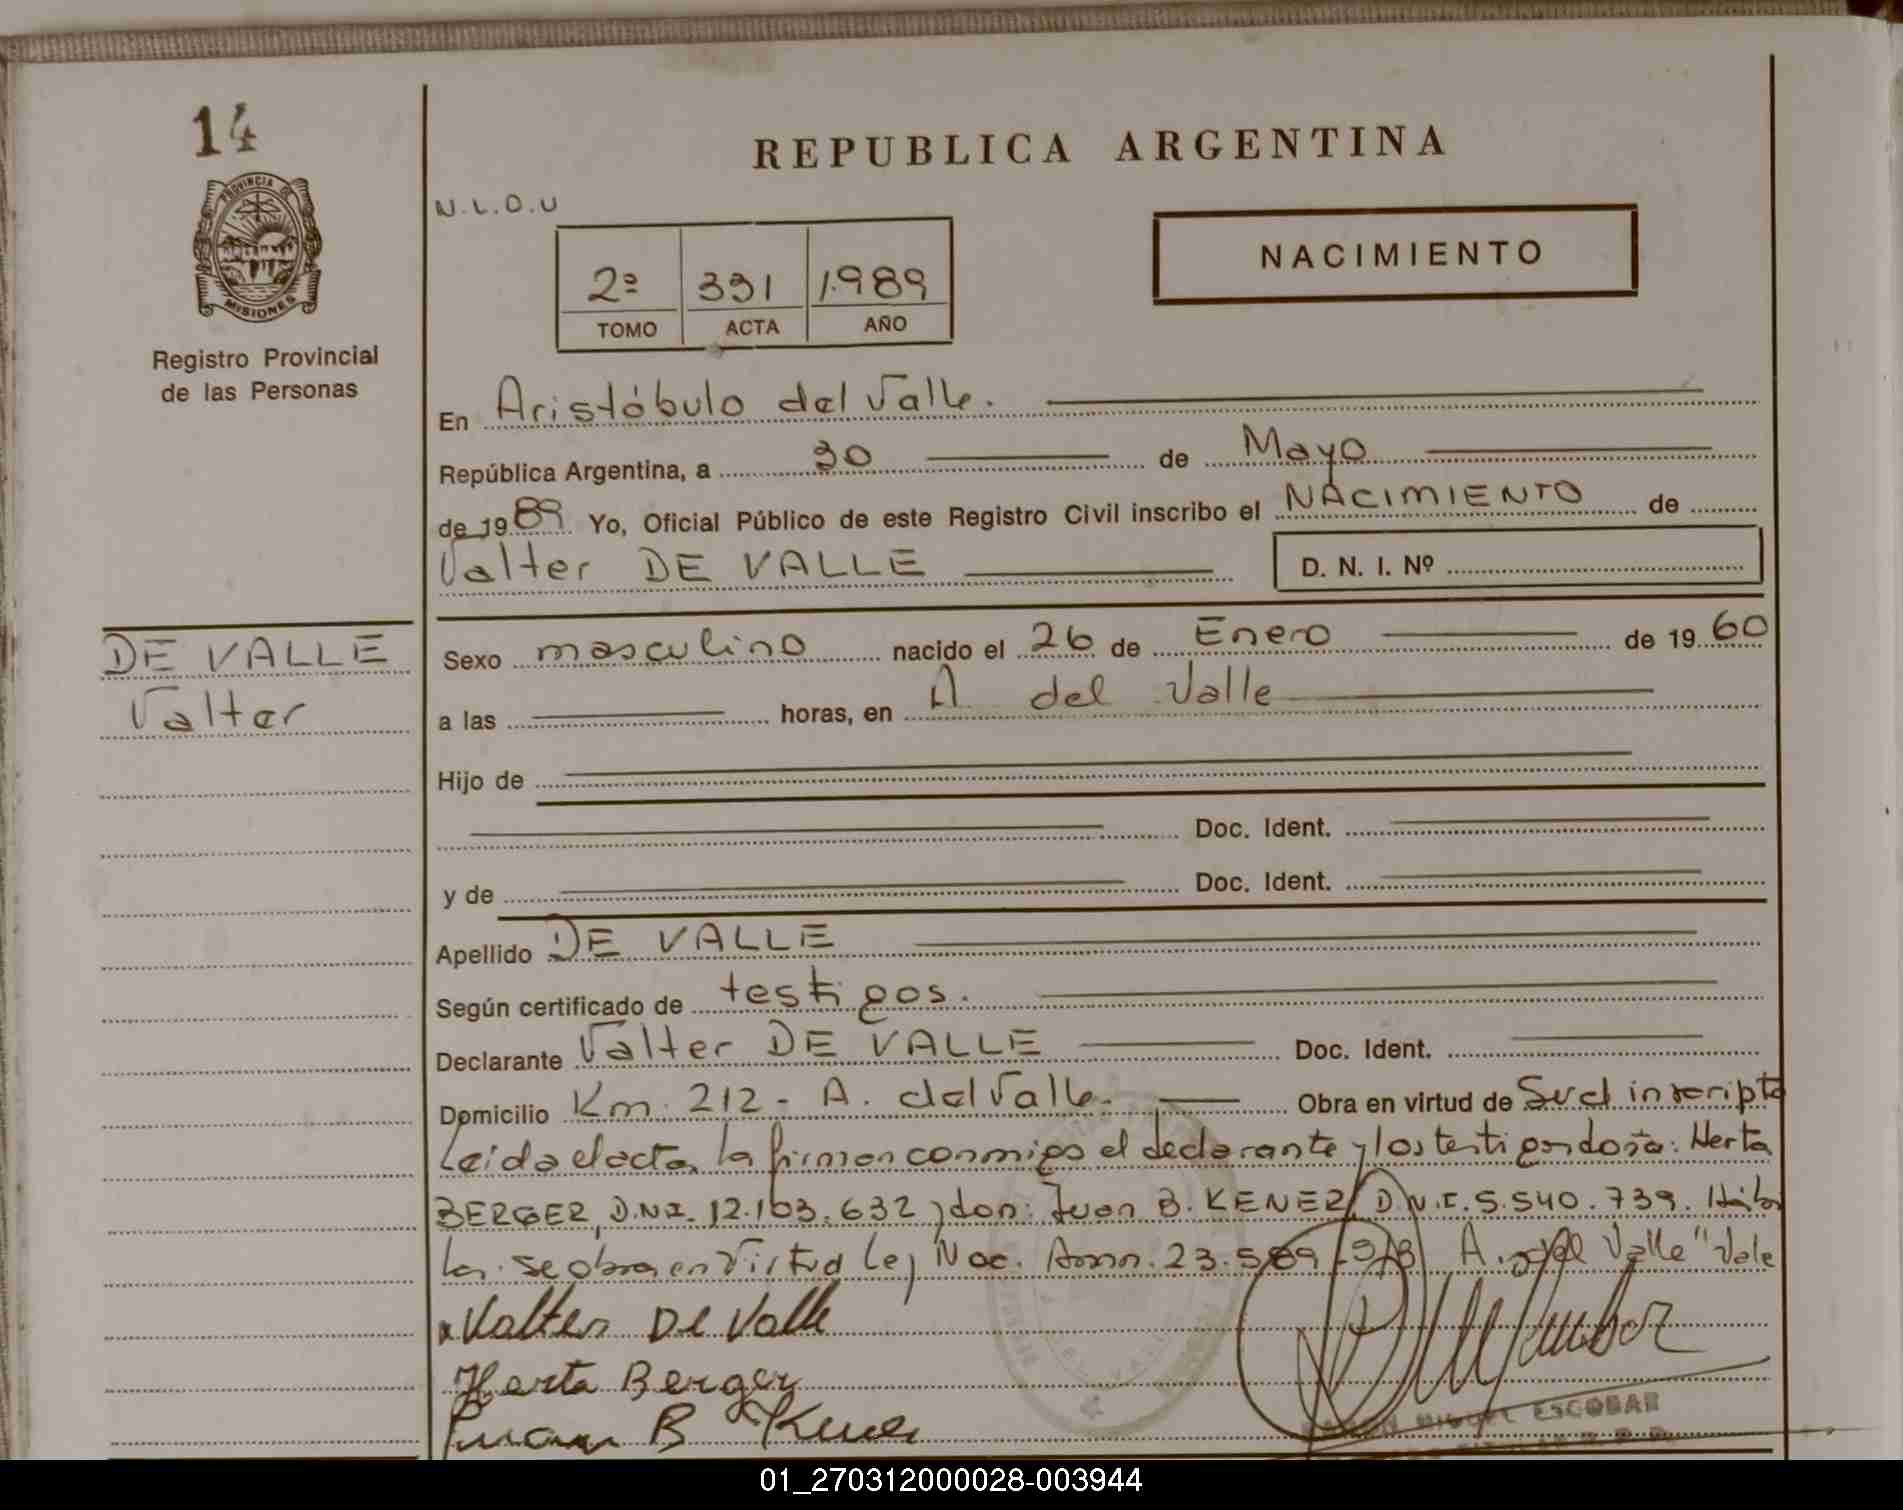 14
REPUBLICA ARGENTINA
PROVINCIA DE
MISIONES
N.L.O.U
NACIMIENTO
2ª 331 1.989
TOMO ACTA AÑO
Registro Provincial
de las Personas
En Aristóbulo del Valle.
República Argentina, a 30 de Mayo
de 1989 Yo, Oficial Público de este Registro Civil inscribo el NACIMIENTO de
Valter DE VALLE D. N. I. Nº
DE VALLE
Valter
Sexo masculino nacido el 26 de Enero de 1960
a las horas, en A del Valle
Hijo de
Doc. Ident.
y de Doc. Ident.
Apellido DE VALLE
Según certificado de testigos.
Declarante Valter DE VALLE Doc. Ident.
Domicilio Km. 212 - A. del Valle. Obra en virtud de Sud inscripto
Leida el acta, la firman conmigo el declarante y los testigos doña: Herta
BERGER, D.N.I. 12.103.632 y don: Juan B. KENER, D.N.I. 5.540.739.
se obra en Virtud Ley Nac. 23. A. del Valle" Vale
Valter De Valle
Herta Berger
Juan B Kener
RAMON MIGUEL ESCOBAR
01_270312000028-003944